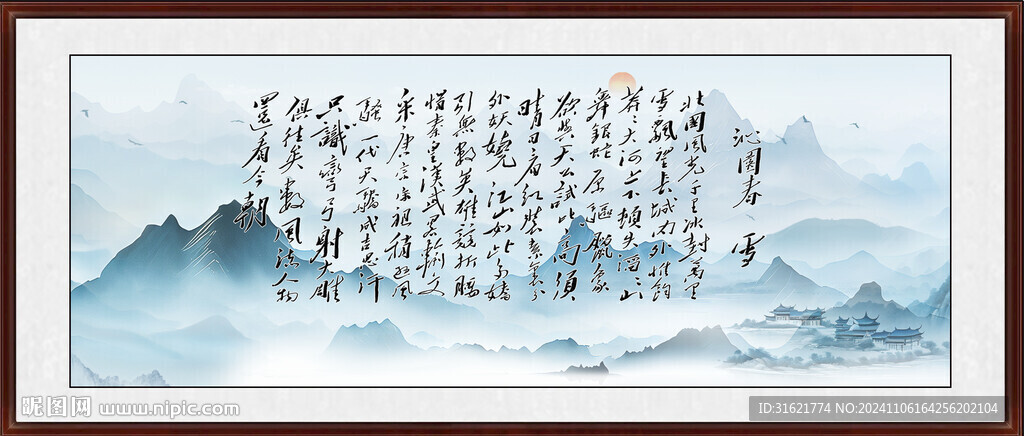 沁園春 雪
北國風光千里冰封萬里
雪飄望長城内外惟餘
莽々大河上下頓失滔々山
舞銀蛇原驅蠟象
欲與天公試比高須
晴日看紅裝素裹分
外妖嬈江山如此多嬌
引無數英雄競折腰
惜秦皇漢武略輸文
采唐宗宋祖稍遜風
騷一代天驕成吉思汗
只識彎弓射大雕
俱往矣數風流人物
還看今朝
昵图网 www.nipic.com
ID:31621774 NO:20241106164256202104